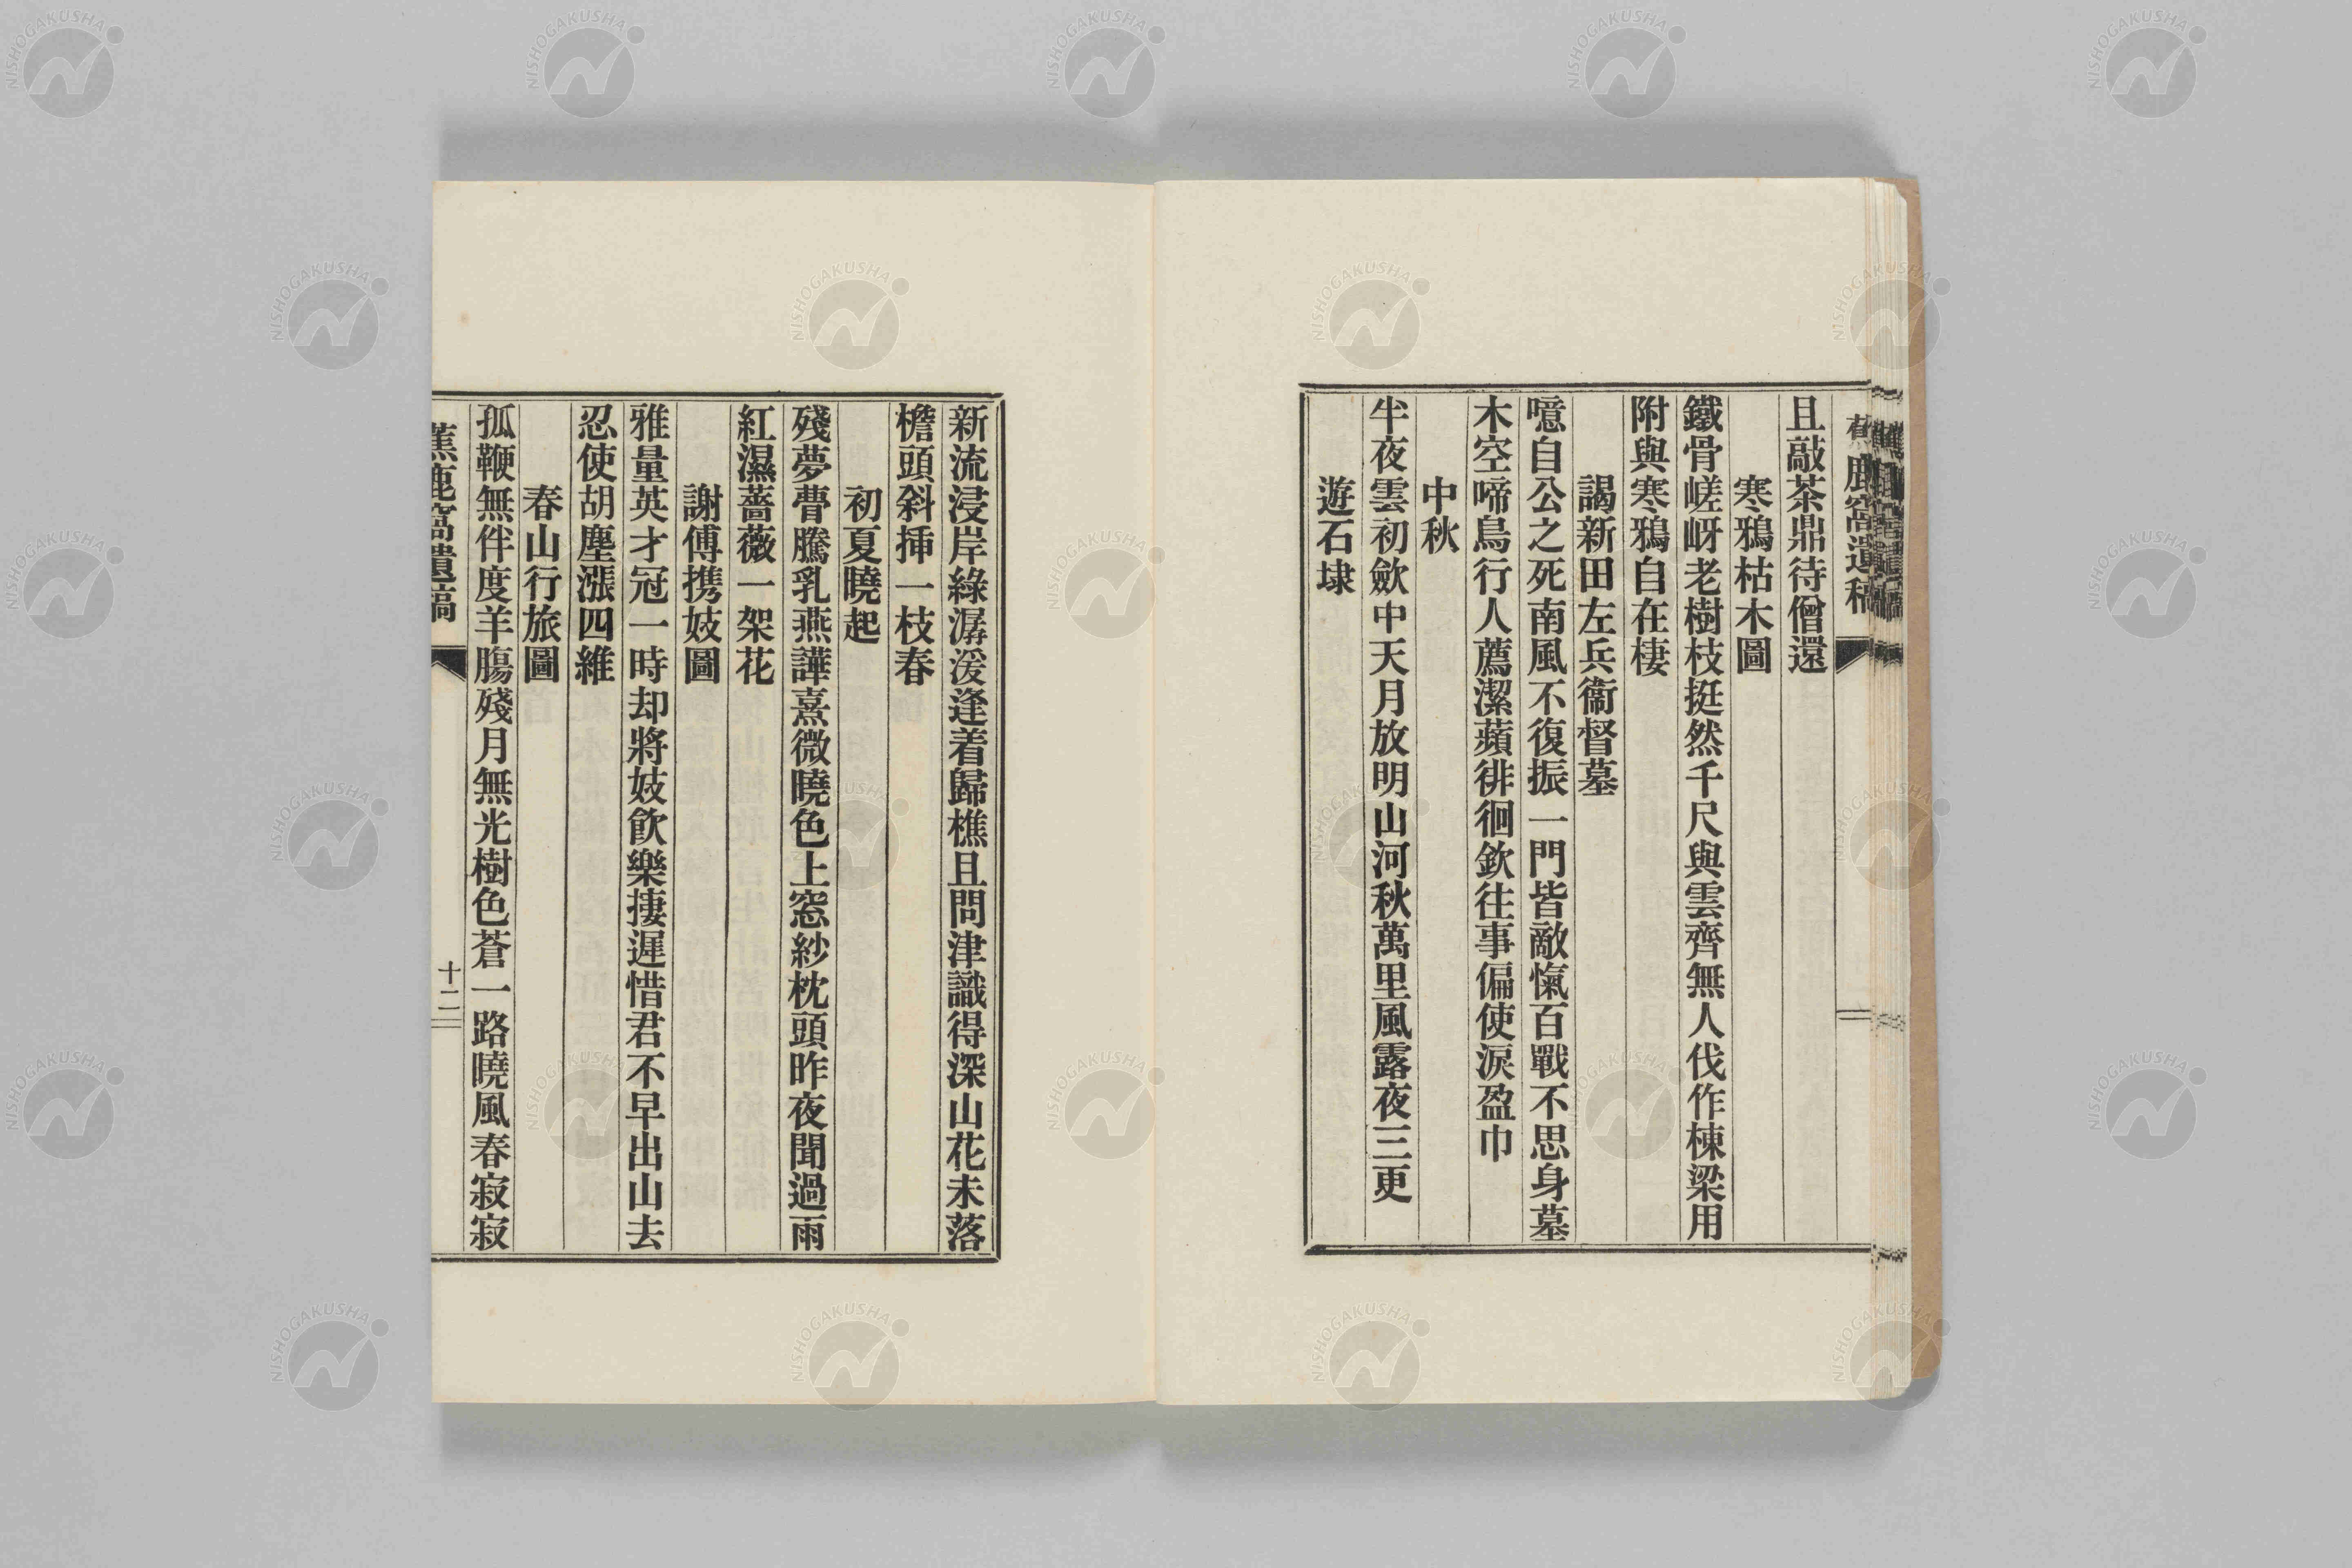 蕉鹿窩遺稿
且敲茶鼎待僧還
寒鴉枯木圖
鐵骨嵯岈老樹枝挺然千尺與雲齊無人伐作棟梁用
附與寒鴉自在棲
謁新田左兵衞督墓
噫自公之死南風不復振一門皆敵愾百戰不思身墓
木空啼鳥行人薦潔蘋徘徊欽往事偏使淚盈巾
中秋
半夜雲初歛中天月放明山河秋萬里風露夜三更
遊石埭
新流浸岸綠潺湲逢着歸樵且問津識得深山花未落
檐頭斜挿一枝春
初夏曉起
殘夢瞢騰乳燕譁熹微曉色上窓紗枕頭昨夜聞過雨
紅濕薔薇一架花
謝傅携妓圖
雅量英才冠一時却將妓飮樂捿遲惜君不早出山去
忍使胡塵漲四維
春山行旅圖
孤鞭無伴度羊膓殘月無光樹色蒼一路曉風春寂寂
蕉鹿窩遺稿
十二
NISHOGAKUSHA